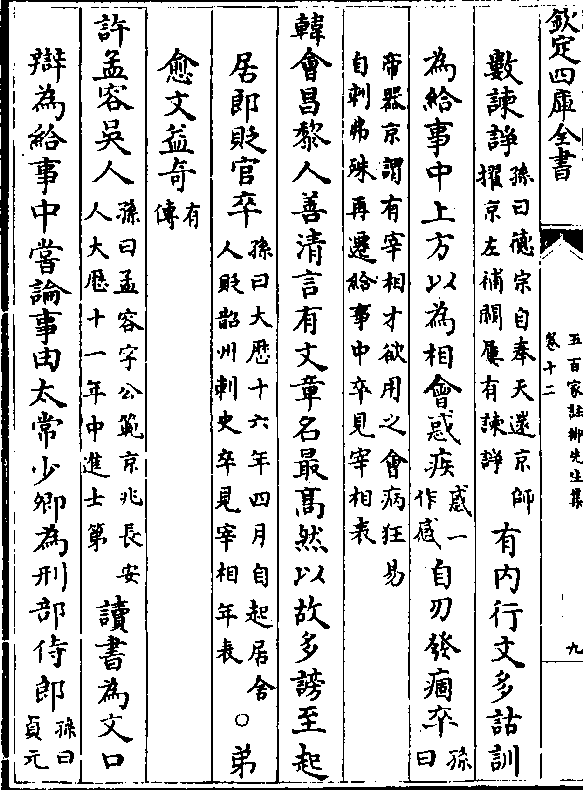 欽定四庫全書
五百家註柳先生集
卷十二
九
數諫諍孫曰德宗自奉天還京師擢京左補闕屢有諫諍有内行文多詁訓
為給事中上方以為相會惑疾惑一作感自刃發痼卒孫曰
帝器京謂有宰相才欲用之會病狂易自刺弗殊再遷給事中卒見宰相表
韓會昌黎人善清言有文章名最髙然以故多謗至起
居郎貶官卒孫曰大厯十六年四月自起居舍人貶韶州刺史卒見宰相年表○弟
愈文益奇有傳
許孟容吳人孫曰孟容字公範京兆長安人大厯十一年中進士第讀書為文口
辯為給事中嘗論事由太常少卿為刑部侍郎孫曰貞元